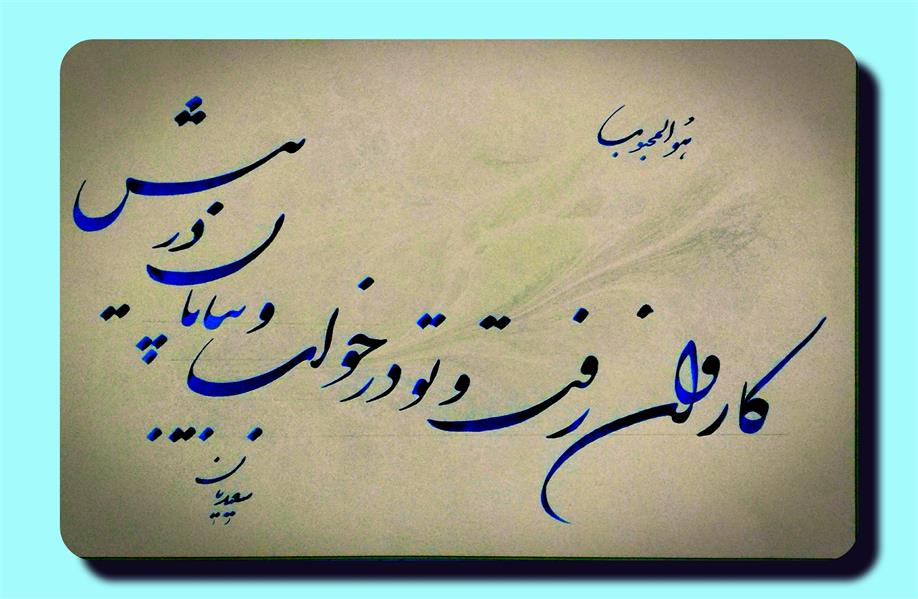 هُوَالمحبوب
کاروان رفت و تو در خواب و بیابان در پیش
سعیدیان